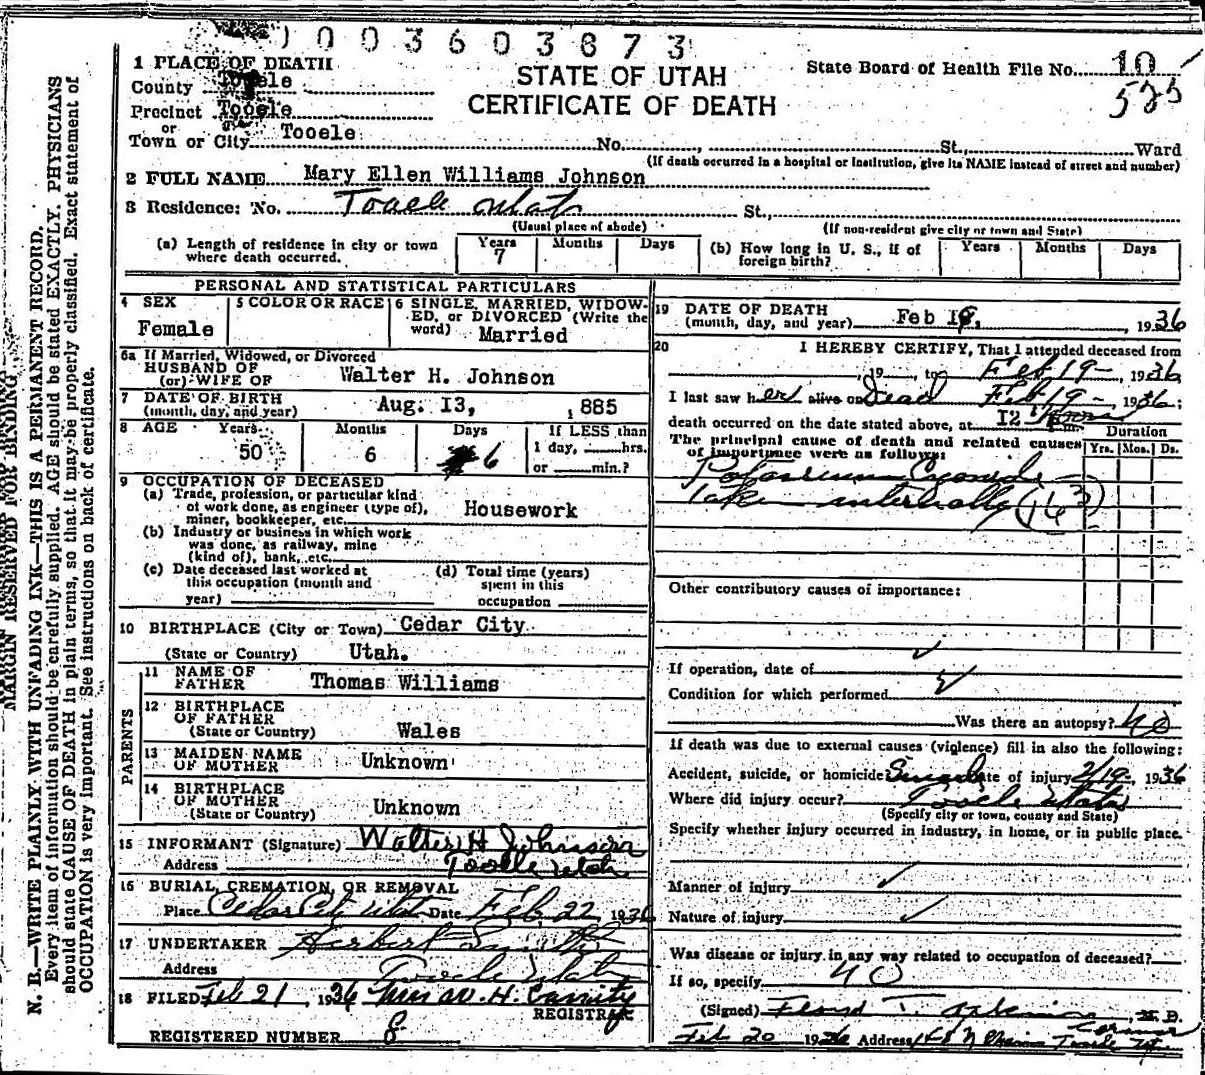 1003603673
1 PLACE OF DEATH
STATE OF UTAH
State Board of Health File No. 10
County Tooele
CERTIFICATE OF DEATH
525
Precinct Tooele
or
Town or City Tooele No. St., Ward
(If death occurred in a hospital or institution, give its NAME instead of street and number)
2 FULL NAME Mary Ellen Williams Johnson
3 Residence: No. Tooele Utah St.,
(Usual place of abode) (If non-resident give city or town and State)
(a) Length of residence in city or town where death occurred. Years 7 Months Days
(b) How long in U. S., if of foreign birth? Years Months Days
PERSONAL AND STATISTICAL PARTICULARS
4 SEX Female
5 COLOR OR RACE
6 SINGLE, MARRIED, WIDOWED, or DIVORCED (Write the word) Married
6a If Married, Widowed, or Divorced
HUSBAND OF
(or) WIFE OF Walter H. Johnson
7 DATE OF BIRTH
(month, day, and year) Aug. 13, 1885
8 AGE Years 50 Months 6 Days 6
If LESS than 1 day, hrs. or min.?
9 OCCUPATION OF DECEASED
(a) Trade, profession, or particular kind of work done, as engineer (type of), miner, bookkeeper, etc. Housework
(b) Industry or business in which work was done, as railway, mine (kind of), bank, etc.
(c) Date deceased last worked at this occupation (month and year)
(d) Total time (years) spent in this occupation
10 BIRTHPLACE (City or Town) Cedar City
(State or Country) Utah.
PARENTS
11 NAME OF FATHER Thomas Williams
12 BIRTHPLACE OF FATHER (State or Country) Wales
13 MAIDEN NAME OF MOTHER Unknown
14 BIRTHPLACE OF MOTHER (State or Country) Unknown
15 INFORMANT (Signature) Walter H Johnson
Address Tooele Utah.
16 BURIAL, CREMATION, OR REMOVAL
Place Cedar City Utah Date Feb 22, 1936
17 UNDERTAKER Herbert
Address Tooele Utah
18 FILED Feb 21, 1936 W. H. Cassity
REGISTRAR
REGISTERED NUMBER 8
19 DATE OF DEATH
(month, day, and year) Feb 19, , 1936
20 I HEREBY CERTIFY, That I attended deceased from
, 19 , to Feb 19-, 1936
I last saw her alive on Dead Feb 19-, 1936;
death occurred on the date stated above, at 12 Noon m.
The principal cause of death and related causes of importance were as follows:
Duration
Yrs. Mos. Ds.
Potassium Cyanide
Taken internally (163)
Other contributory causes of importance:
If operation, date of
Condition for which performed
Was there an autopsy? No
If death was due to external causes (violence) fill in also the following:
Accident, suicide, or homicide Suicide Date of injury 2/19-, 1936
Where did injury occur? Tooele Utah
(Specify city or town, county and State)
Specify whether injury occurred in industry, in home, or in public place.
Manner of injury
Nature of injury
Was disease or injury in any way related to occupation of deceased?
If so, specify No
(Signed) Floyd T. , M. D.
Coroner
Feb 20 1936 Address Tooele
MARGIN RESERVED FOR BINDING
N. B.—WRITE PLAINLY WITH UNFADING INK—THIS IS A PERMANENT RECORD.
Every item of information should be carefully supplied. AGE should be stated EXACTLY. PHYSICIANS
should state CAUSE OF DEATH in plain terms, so that it may be properly classified. Exact statement of
OCCUPATION is very important. See instructions on back of certificate.